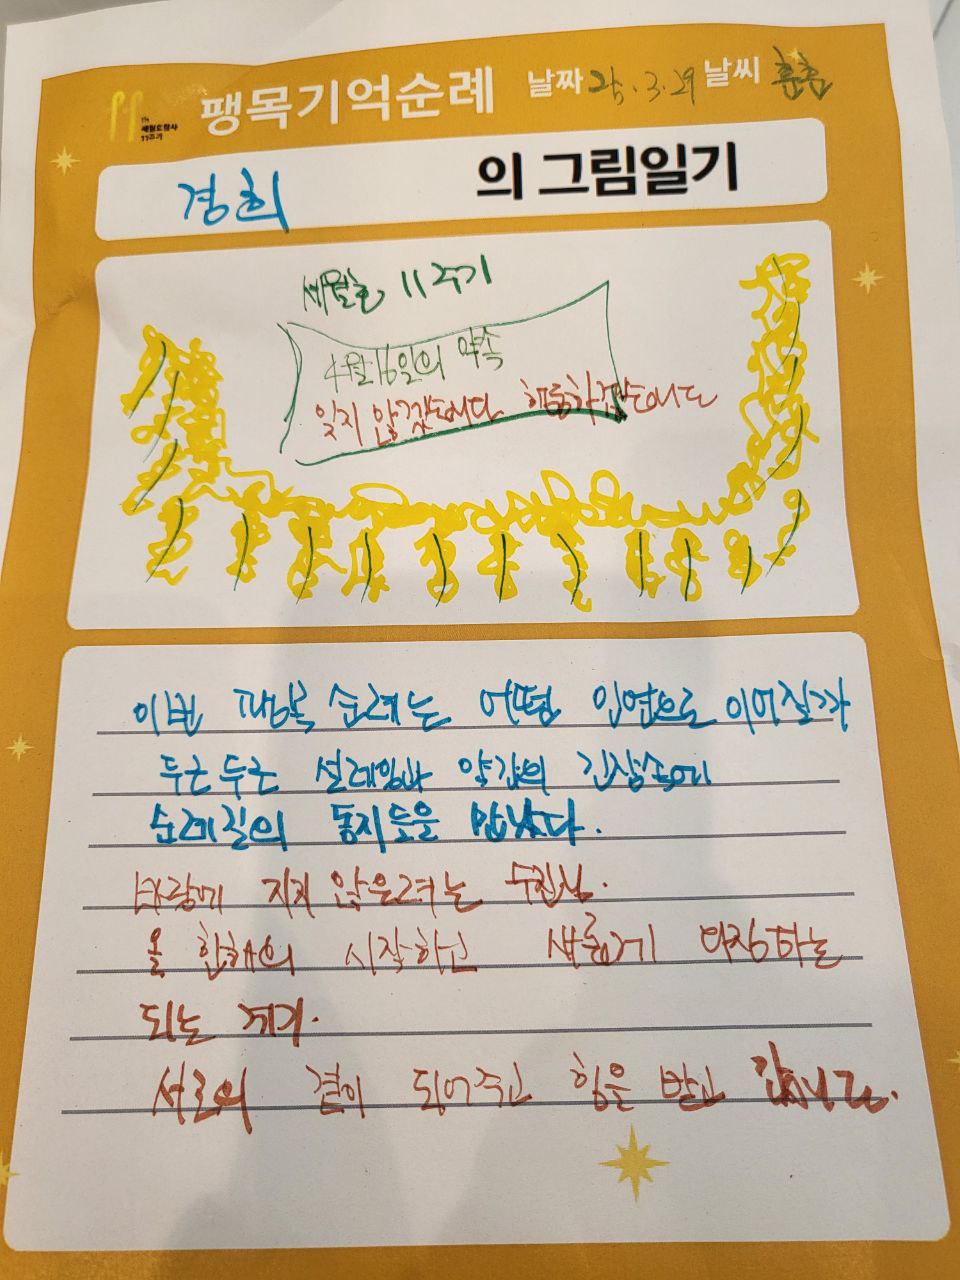 팽목기억순례 날짜 25.3.29 날씨
세월호참사
11주기
경희 의 그림일기
세월호 11주기
4월16일의 약속
잊지 않겠습니다 행동하겠습니다
이번 팽목 순례는 어떤 인연으로 이어질까
두근두근 설레임과 약간의 긴장속에
순례길의 동지들을 만났다.
바람에 지지 않으려는
올 한해의 시작하고 새롭게 다짐하는
되는 계기.
서로의 곁이 되어주고 힘을 받고 갑니다.